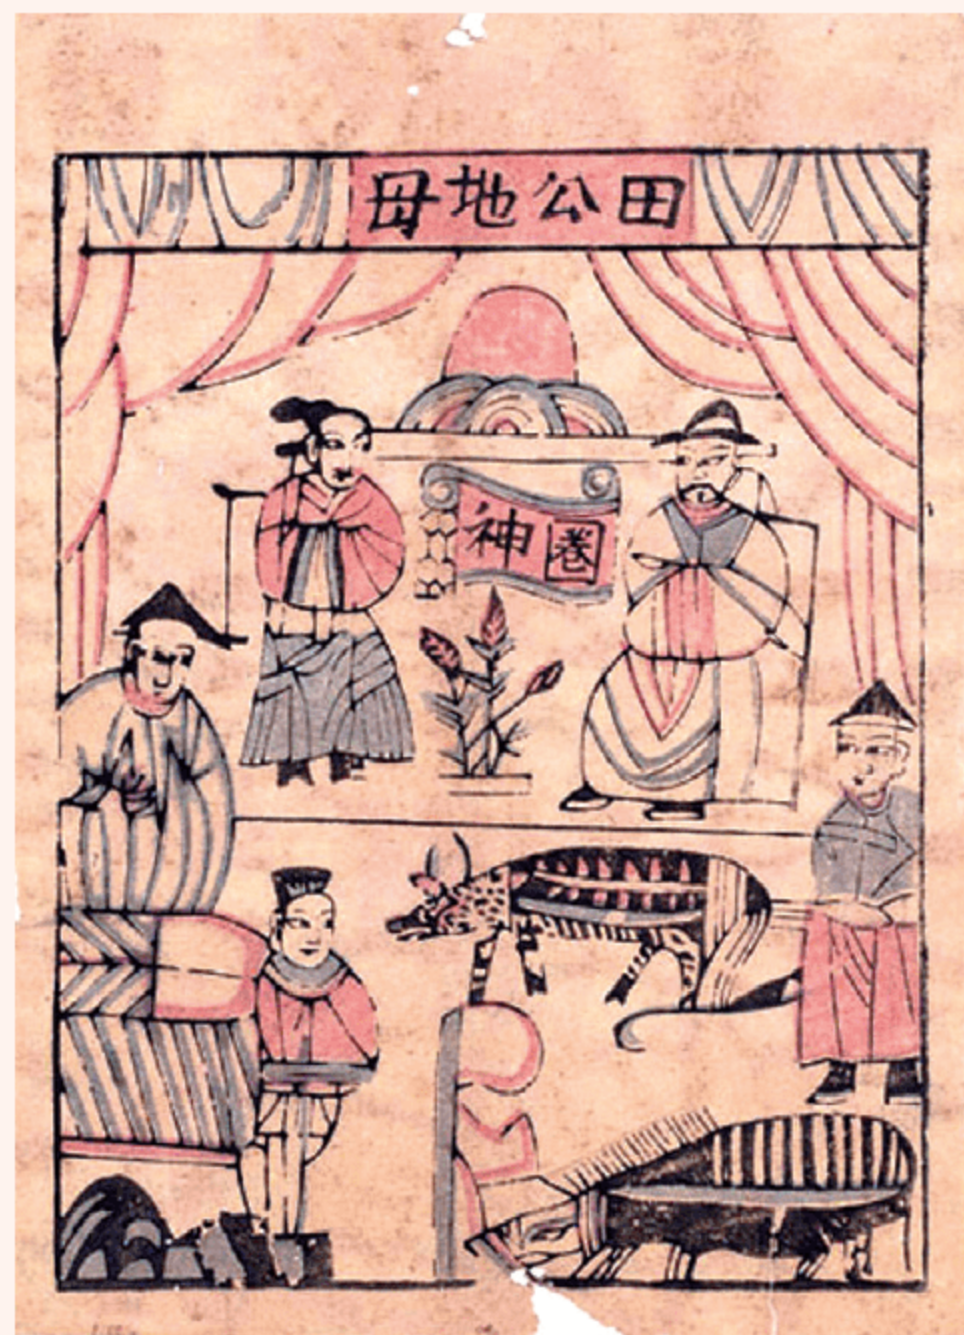 田公地母
圈神